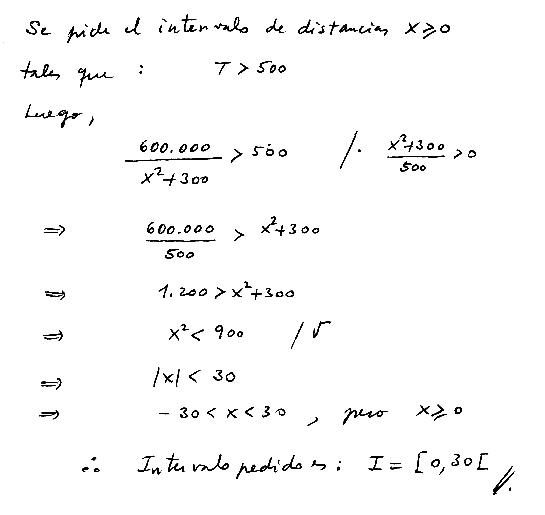 Se pide el intervalo de distancias x ≥ 0
tales que : T > 500
Luego,
600.000 / (x²+300) > 500 /· (x²+300)/500 > 0
⇒ 600.000 / 500 > x²+300
⇒ 1.200 > x²+300
⇒ x² < 900 / √
⇒ |x| < 30
⇒ - 30 < x < 30 , pero x ≥ 0
∴ Intervalo pedido es : I = [0,30[ //.